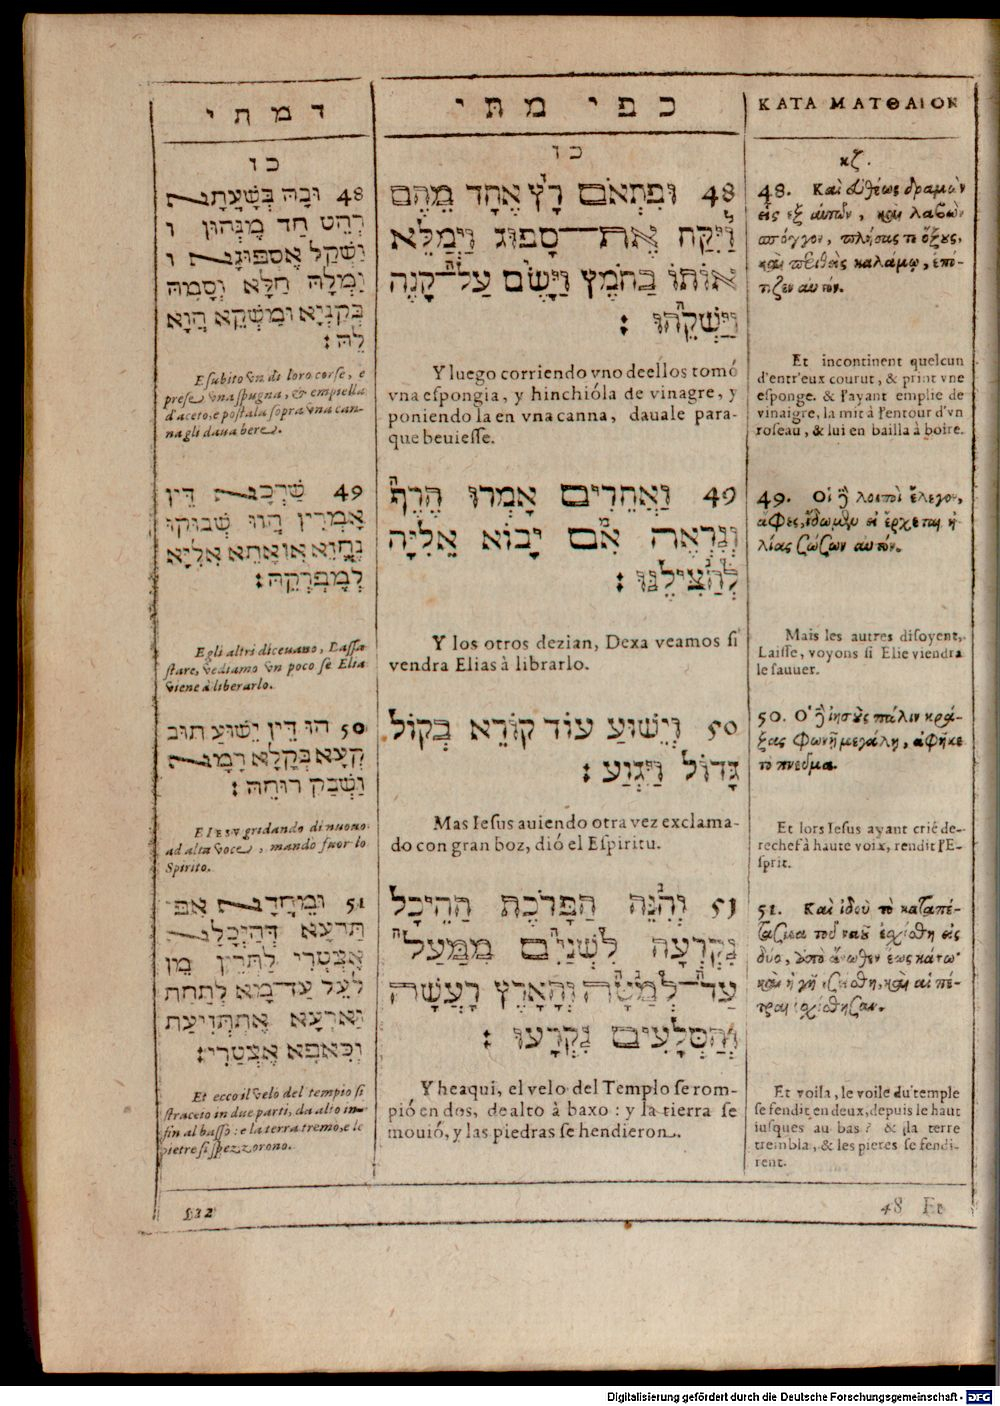 ד מ ת י
כ פ י מ ת י
ΚΑΤΑ ΜΑΤΘΑΙΟΝ
כו
48 וּבָהּ בְּשָׁעֲתָא
רְהֵט חַד מֶנְּהוּן ו
וּשְׁקַל אֶסְפּוּגָא ו
וּמְלָהּ חַלָּא וְסָמָהּ
בְּקַנְיָא וּמַשְׁקֵא הֲוָא
לֵהּ :
E subito vn di loro corse, e
prese vna spugna, & empiella
d'aceto, e postala sopra vna can-
na gli daua bere.
49 שַׁרְכָּא דֵּין
אָמְרִין הֲווֹ שְׁבוּקוּ
נֶחֱזֵא אִן אָתֵא אֵלִיָּא
לְמִפְרְקֵהּ :
E gli altri diceuano, Lassa
stare, vediamo vn poco se Elia
viene à liberarlo.
50 הוּ דֵּין יֵשׁוּעַ תּוּב
קְעָא בְּקָלָא רָמָא
וּשְׁבַק רוּחֵהּ :
E IESV gridando di nuouo
ad alta voce, mandò fuor lo
Spirito.
51 וּמֵחֲדָא אַפַּי
תַּרְעָא דְּהַיְכְּלָא
אֶצְטְרִי לַתְּרֵין מֵן
לְעֵל עַד־מָא לְתַחַת
וְאַרְעָא אֶתְּתְּזִיעַת
וְכִאפֵא אֶצְטַרִי :
Et ecco il velo del tempio si
stracciò in due parti, da alto in-
fin al basso : e la terra tremò, e le
pietre si spezzorono.
כו
48 וּפִתְאֹם רָץ אֶחָד מֵהֶם
וַיִּקַּח אֶת־סָפוּג וַיְמַלֵּא
אוֹתוֹ בַּחֹמֶץ וַיָּשֶׂם עַל־קָנֶה
וַיַּשְׁקֵהוּ :
Y luego corriendo vno deellos tomó
vna espongia, y hinchióla de vinagre, y
poniendola en vna canna, dauale para-
que beuiesse.
49 וַאֲחֵרִים אָמְרוּ הֶרֶף
וְנִרְאֶה אִם יָבוֹא אֵלִיָּה
לְהַצִּילֶנּוּ :
Y los otros dezian, Dexa veamos si
vendra Elias à librarlo.
50 וְיֵשׁוּעַ עוֹד קוֹרֵא בְּקוֹל
גָּדוֹל וַיִּגְוַע :
Mas Iesus auiendo otra vez exclama-
do con gran boz, dió el Espiritu.
51 וְהִנֵּה הַפָּרֹכֶת הַהֵיכָל
נִקְרְעָה לִשְׁנַיִם מִמַּעַל
עַד־לְמַטָּה וְהָאָרֶץ רָעֲשָׁה
וְהַסְּלָעִים נִקְרָעוּ :
Y heaqui, el velo del Templo se rom-
pió en dos, de alto à baxo : y la tierra se
mouió, y las piedras se hendieron.
κζ.
48. Καὶ εὐθέως δραμὼν
εἷς ἐξ αὐτῶν, καὶ λαβὼν
σπόγγον, πλήσας τε ὄξους,
καὶ περιθεὶς καλάμῳ, ἐπό-
τιζεν αὐτόν.
Et incontinent quelcun
d'entr'eux courut, & print vne
esponge. & l'ayant emplie de
vinaigre, la mit à l'entour d'vn
roseau, & lui en bailla à boire.
49. Οἱ δὲ λοιποὶ ἔλεγον,
ἄφες, ἴδωμεν εἰ ἔρχεται ἠ-
λίας σώσων αὐτόν.
Mais les autres disoyent,
Laisse, voyons si Elie viendra
le sauuer.
50. Ὁ δὲ ἰησοῦς πάλιν κρά-
ξας φωνῇ μεγάλῃ, ἀφῆκε
τὸ πνεῦμα.
Et lors Iesus ayant crié de-
rechef à haute voix, rendit l'E-
sprit.
51. Καὶ ἰδοὺ τὸ καταπέ-
τασμα τοῦ ναοῦ ἐσχίσθη εἰς
δύο, ἀπὸ ἄνωθεν ἕως κάτω·
καὶ ἡ γῆ ἐσείσθη, καὶ αἱ πέ-
τραι ἐσχίσθησαν.
Et voila, le voile du temple
se fendit en deux, depuis le haut
iusques au bas ? & la terre
trembla, & les pieres se fendi-
rent.
532
48 Et
Digitalisierung gefördert durch die Deutsche Forschungsgemeinschaft - DFG